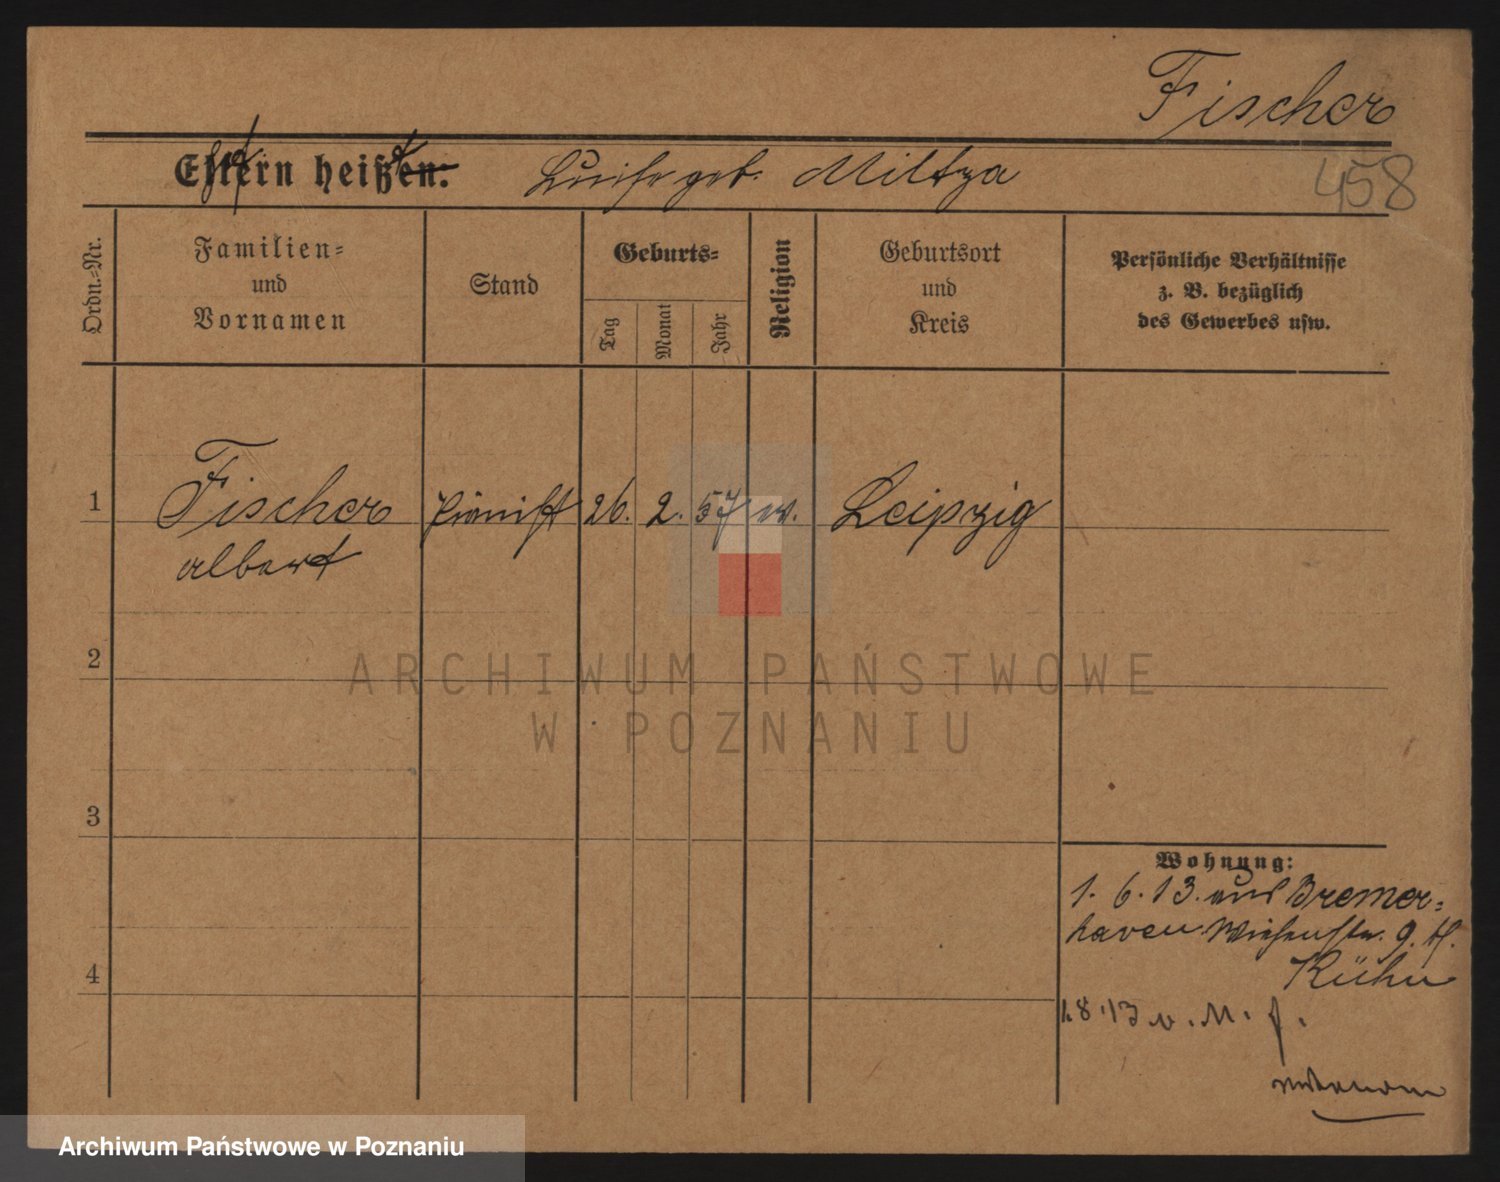 Fischer
458
Eltern heißen: Luise geb. Miltza
Ordn.-Nr.
Familien-
und
Vornamen
Stand
Geburts-
Tag
Monat
Jahr
Religion
Geburtsort
und
Kreis
Persönliche Verhältnisse
z. B. bezüglich
des Gewerbes usw.
1 Fischer Pianist 26. 2. 57 ev. Leipzig
Albert
2
3
4
Wohnung:
1. 6. 13. aus Bremer-
haven Wiesenstr. 9. H.
Kühn
1.8.13 v. M. f.
unbekannt
ARCHIWUM PAŃSTWOWE
W POZNANIU
Archiwum Państwowe w Poznaniu